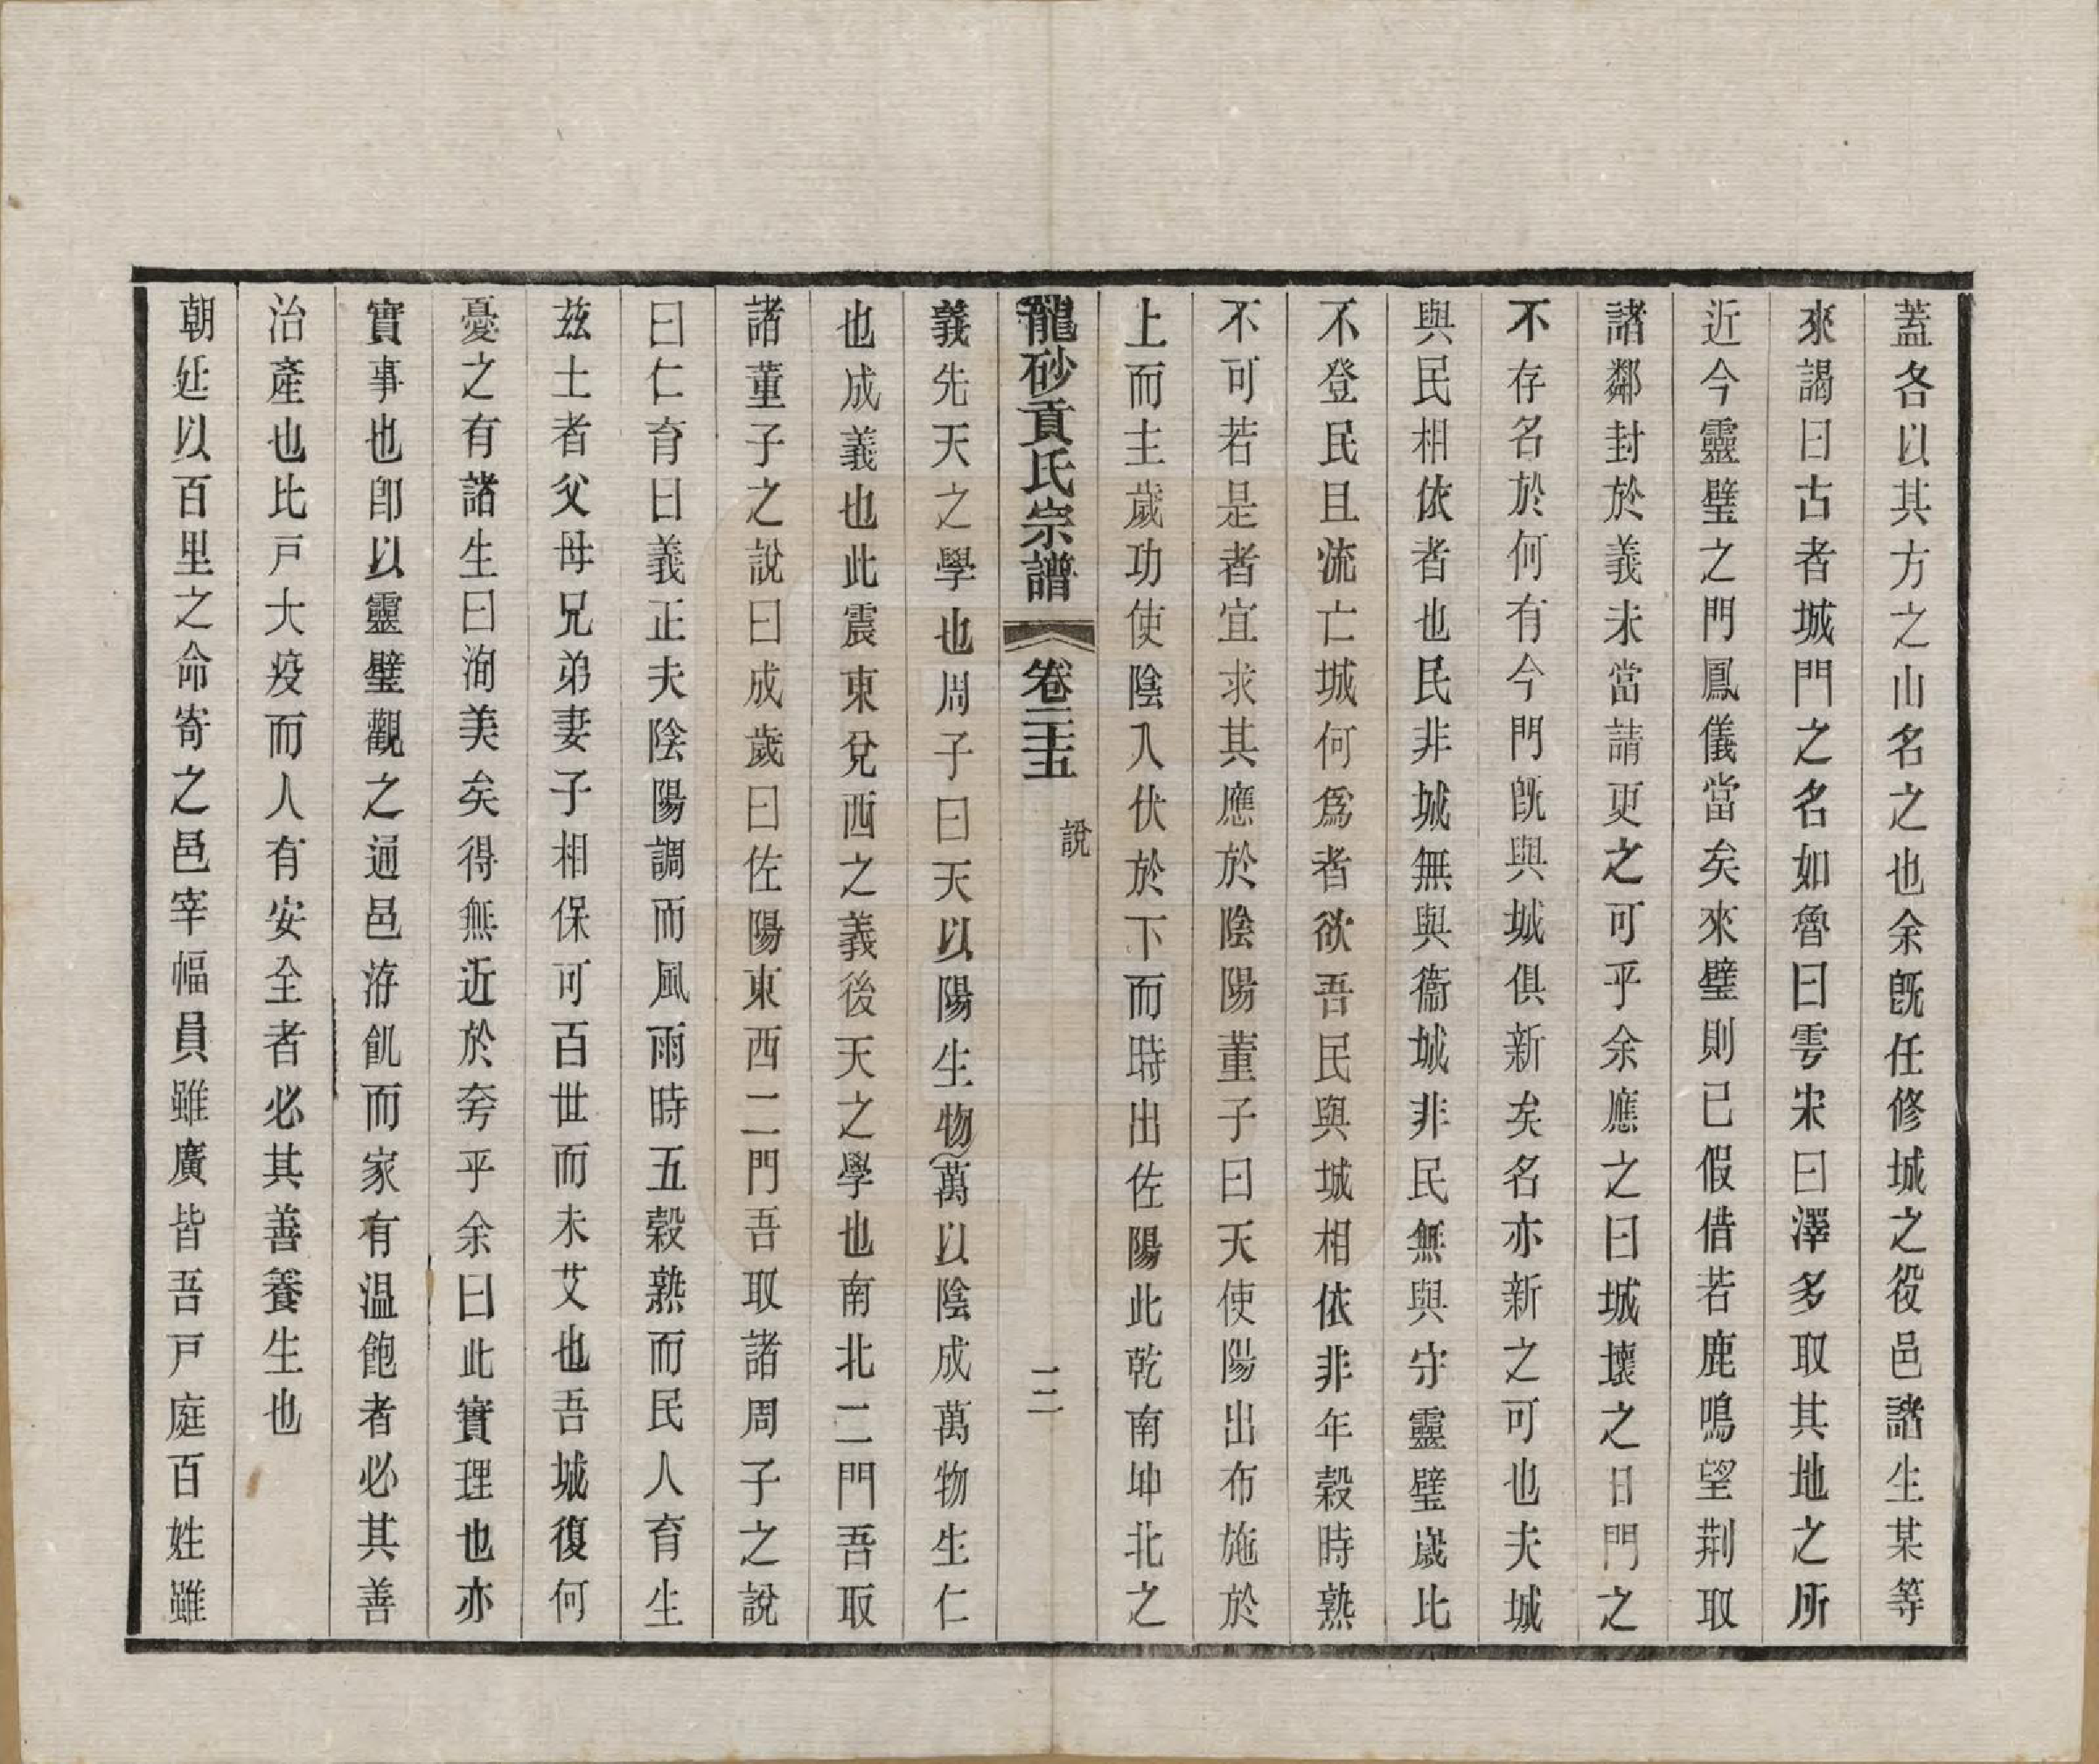 蓋各以其方之山名之也余既任修城之役邑諸生某等
來謁曰古者城門之名如魯曰雩宋曰澤多取其地之所
近今靈璧之門鳳儀當矣來璧則已假借若鹿鳴望荆取
諸鄰封於義未當請更之可乎余應之曰城壞之日門之
不存名於何有今門既與城俱新矣名亦新之可也夫城
與民相依者也民非城無與衞城非民無與守靈璧歲比
不登民且流亡城何爲者欲吾民與城相依非年穀時熟
不可若是者宜求其應於陰陽董子曰天使陽出布施於
上而主歲功使陰入伏於下而時出佐陽此乾南坤北之
龍砂貢氏宗譜 卷二十五 說 二
義先天之學也周子曰天以陽生物萬以陰成萬物生仁
也成義也此震東兌西之義後天之學也南北二門吾取
諸董子之說曰成歲曰佐陽東西二門吾取諸周子之說
曰仁育曰義正夫陰陽調而風雨時五穀熟而民人育生
兹土者父母兄弟妻子相保可百世而未艾也吾城復何
憂之有諸生曰洵美矣得無近於夸乎余曰此實理也亦
實事也卽以靈璧觀之通邑洊飢而家有温飽者必其善
治產也比戸大疫而人有安全者必其善養生也
朝廷以百里之命寄之邑宰幅員雖廣皆吾戸庭百姓雖